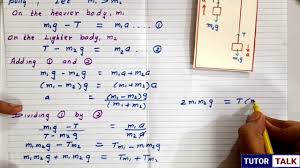 pully , Let m₁ > m₂
On the heavier body, m₁
m₁g - T = m₁a ... ①
On the Lighter body, m₂
T - m₂g = m₂a ... ②
Adding ① and ②
m₁g - m₂g = m₁a + m₂a
(m₁ - m₂)g = (m₁ + m₂)a
a = (m₁ - m₂)g / (m₁ + m₂)
Dividing ① by ②
m₁g - T / T - m₂g = m₁a / m₂a
m₁m₂g - m₂T = Tm₁ -
m₁m₂g + m₁m₂g = Tm₁ + Tm₂
m₁g
m₂g
2m₁m₂g = T(m
TUTOR TALK